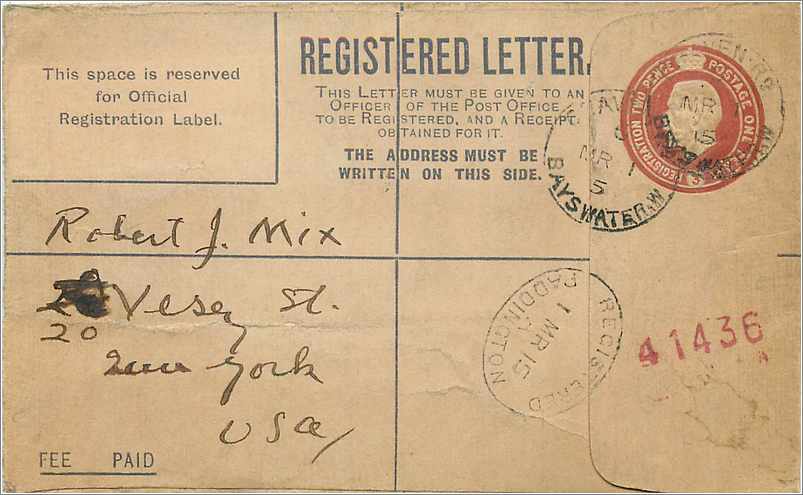 This space is reserved
for Official
Registration Label.
REGISTERED LETTER.
THIS LETTER MUST BE GIVEN TO AN
OFFICER OF THE POST OFFICE
TO BE REGISTERED, AND A RECEIPT
OBTAINED FOR IT.
THE ADDRESS MUST BE
WRITTEN ON THIS SIDE.
REGISTRATION TWO PENCE POSTAGE ONE
MR 1
15
BAYSWATER.W
MR 1
5
BAYSWATER.W
Robert J. Mix
Vesey St.
20
New York
USA
REGISTERED
1 MR 15
PADDINGTON
41436
FEE PAID